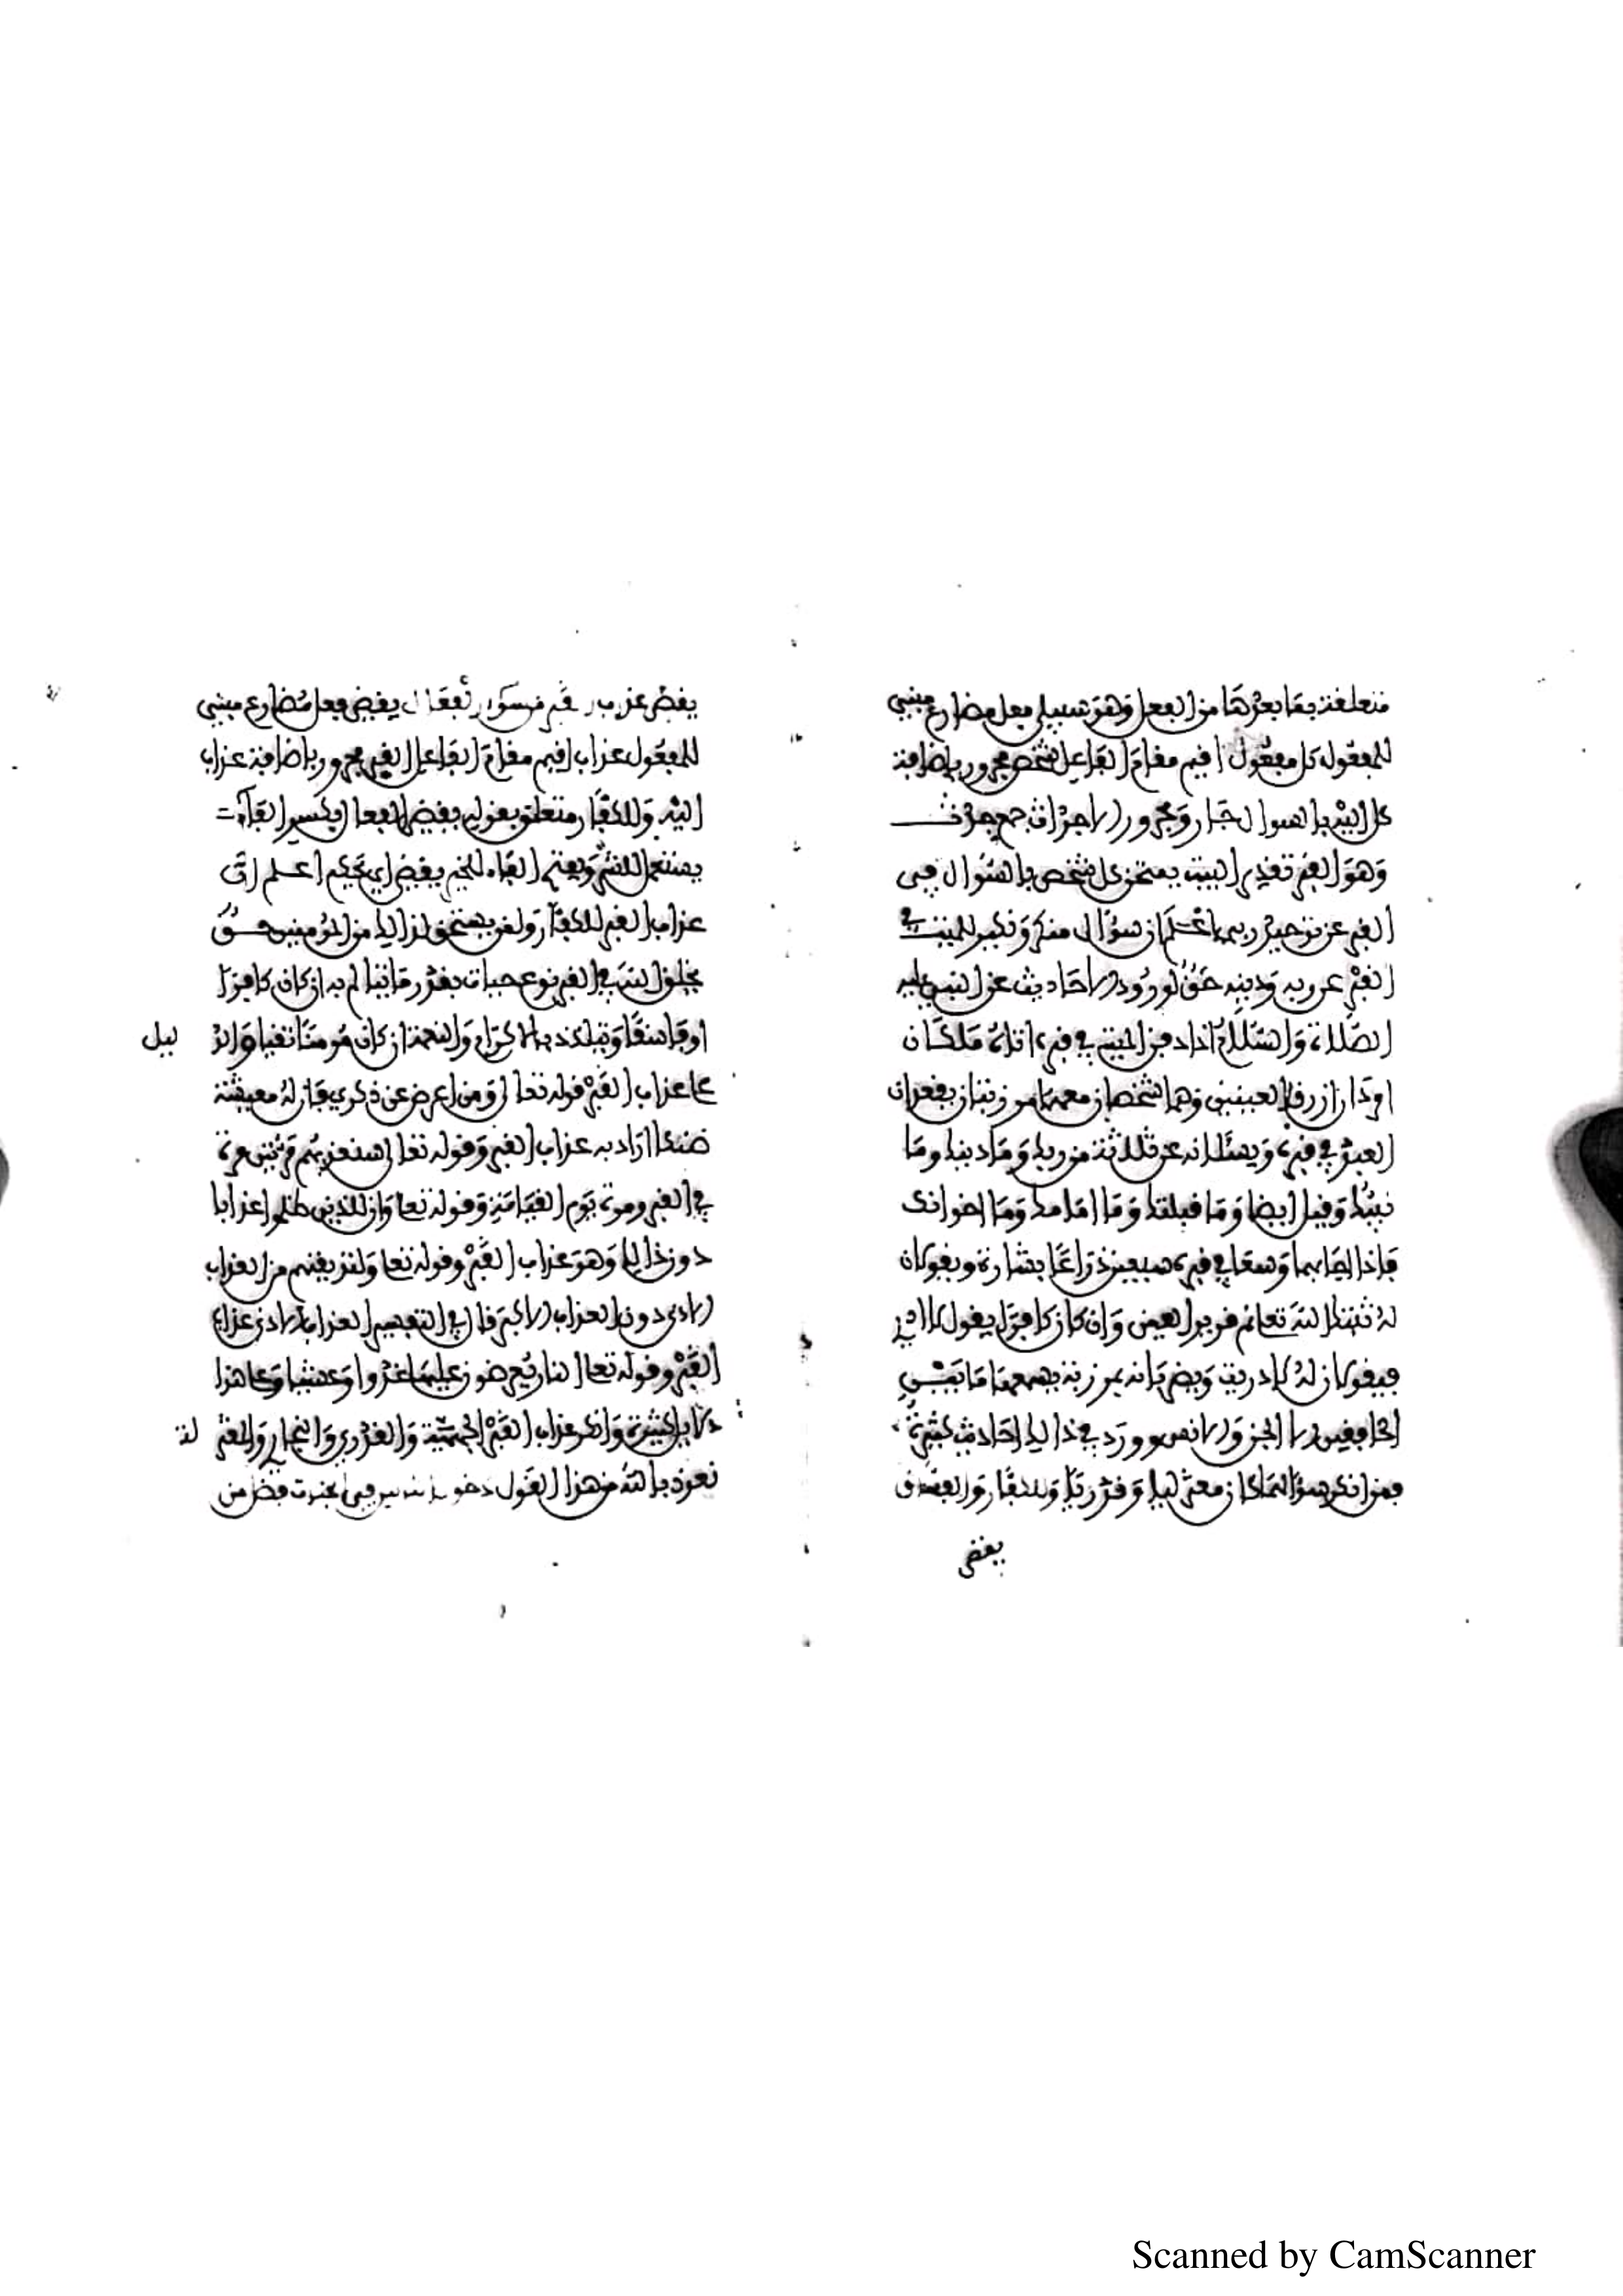 متعلقة بما بعدها من الفعل وهو سيبلى فعل مضارع مبني
للمفعول كل مفعول أقيم مقام الفاعل شخص مجرور بإضافة
كل إليه بالسوال جار ومجرور الاجداث جمع جدث
وهو القبر تقدير البيت يمتحن كل شخص بالسؤال في
القبر عن توحيد ربه اعلم ان سؤال منكر ونكير للميت في
القبر عن ربه ودينه حق لورود الاحاديث عن النبي عليه
الصلاة والسلام اذا دفن الميت في قبره اتاه ملكان
اسودان ازرقا العينين وهما شخصان
العبد في قبره ويسئلانه عن ثلاثة من ربك وما دينك وما
نبيك وقيل ايضا وما قبلتك وما امامك وما اخوانك
فاذا اجابهما وسعا في قبره سبعين ذراعا بشارة ويقولان
له ثبتك الله تعا نم قرير العين وان كان كافرا يقول لا ادري
فيقولان له لا دريت ويضربانه بمرزبة يسمعها ما بين
الخافقين الا الجن والانس وورد في ذالك احاديث كثيرة
فمن انكر سؤالهما كان معتزليا وقدريا وللكفار والفساق
يقضى
يقضى عذاب القبر من سوء الفعال يقضى فعل مضارع مبني
للمفعول عذاب أقيم مقام الفاعل القبر مجرور بإضافة عذاب
اليه وللكفار متعلق بقوله يقضى الفعال بكسر الفاء
يستعمل للشر وبفتح الفاء للخير يقضى اي يحكم اعلم ان
عذاب القبر للكفار ولمن يستحق لذالك من المؤمنين حق
يخلق الله في القبر نوع حيات بقدر ما يتالم به ان كان كافرا
او فاسقا ويتلذذ بالاكرام والنعمة ان كان مؤمنا تقيا والد
ليل
على عذاب القبر قوله تعالى ومن اعرض عن ذكري فان له معيشة
ضنكا اراد به عذاب القبر وقوله تعالى سنعذبهم مرتين مرة
في القبر ومرة يوم القيامة وقوله تعا وان للذين ظلموا عذابا
دون ذالك وهو عذاب القبر وقوله تعا ولنذيقنهم من العذاب
الادنى دون العذاب الاكبر قال في التفسير العذاب الادنى عذاب
القبر وقوله تعا النار يعرضون عليها غدوا وعشيا وعلى هذا
دلائل كثيرة وانكر عذاب القبر الجهمية والقدرية والنجارية والمعتز
لة
نعوذ بالله من هذا القول دخول الناس في الجنات فضل من
Scanned by CamScanner